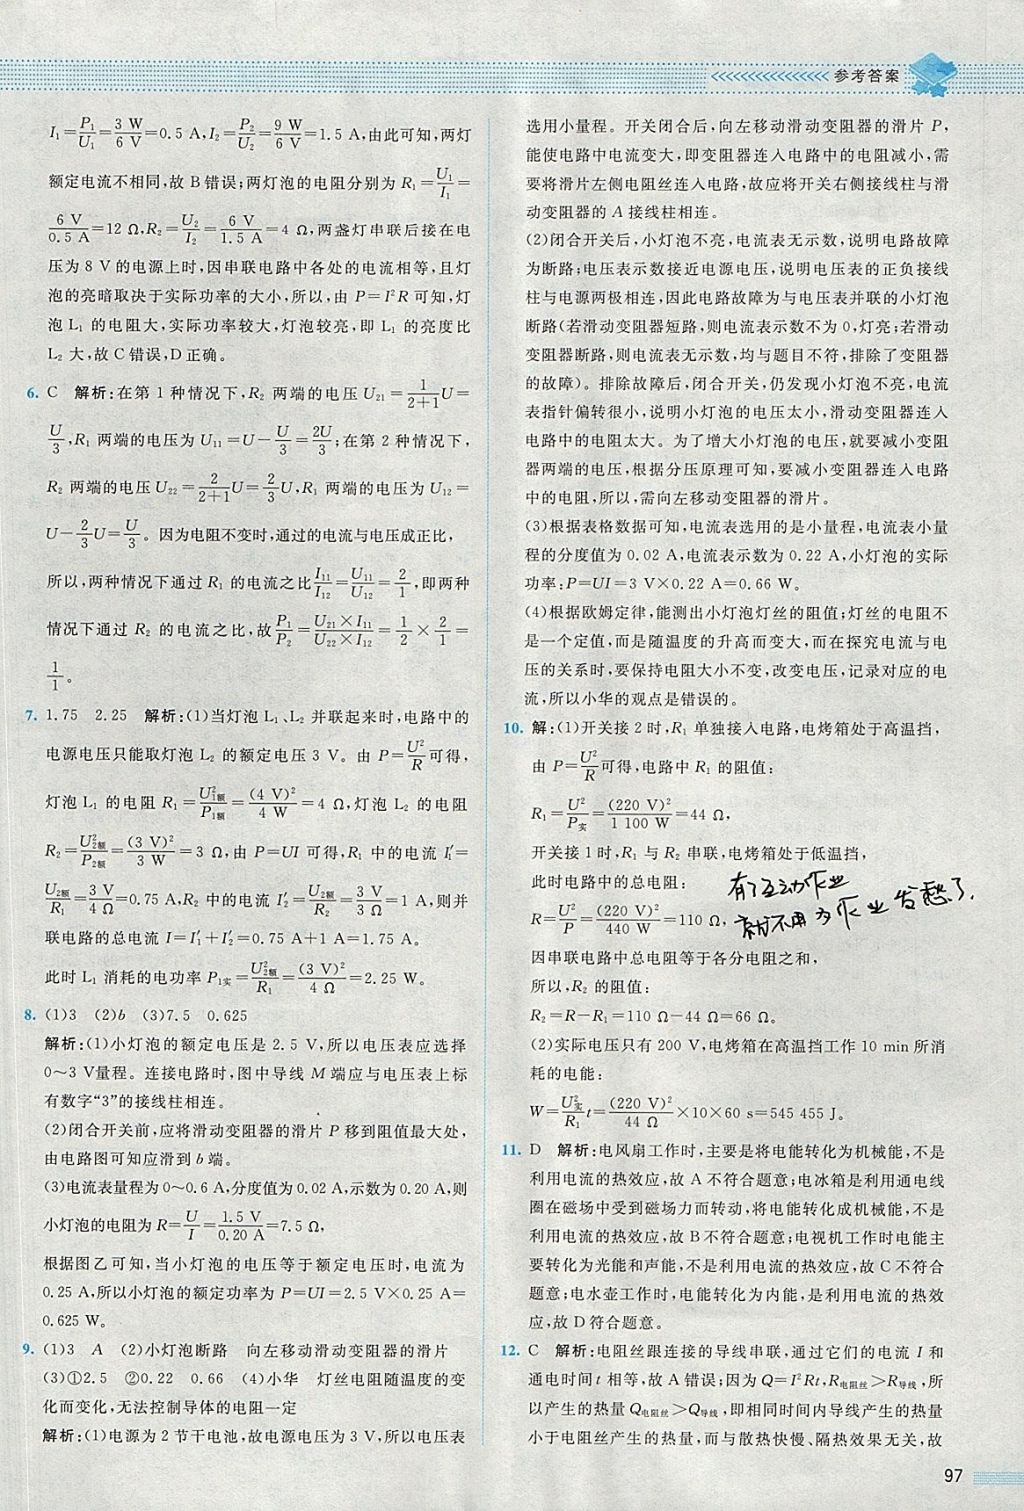 参考答案
I₁=P₁/U₁=3 W/6 V=0.5 A,I₂=P₂/U₂=9 W/6 V=1.5 A,由此可知,两灯
额定电流不相同,故 B错误;两灯泡的电阻分别为 R₁=U₁/I₁=
6 V/0.5 A=12 Ω,R₂=U₂/I₂=6 V/1.5 A=4 Ω,两盏灯串联后接在电
压为 8 V的电源上时,因串联电路中各处的电流相等,且灯
泡的亮暗取决于实际功率的大小,所以,由 P=I²R 可知,灯
泡 L₁ 的电阻大,实际功率较大,灯泡较亮,即 L₁ 的亮度比
L₂ 大,故 C错误,D正确。
6. C 解析:在第 1 种情况下,R₂ 两端的电压 U₂₁=1/(2+1)U=
U/3,R₁ 两端的电压为 U₁₁=U−U/3=2U/3;在第 2 种情况下,
R₂ 两端的电压 U₂₂=2/(2+1)U=2/3U,R₁ 两端的电压为 U₁₂=
U−2/3U=U/3。因为电阻不变时,通过的电流与电压成正比,
所以,两种情况下通过 R₁ 的电流之比I₁₁/I₁₂=U₁₁/U₁₂=2/1,即两种
情况下通过 R₂ 的电流之比,故P₁/P₂=U₂₁×I₁₁/U₂₂×I₁₂=1/2×2/1=
1/1。
7. 1.75 2.25 解析:(1)当灯泡 L₁、L₂ 并联起来时,电路中的
电源电压只能取灯泡 L₂ 的额定电压 3 V。由 P=U²/R可得,
灯泡 L₁ 的电阻 R₁=U²₁额/P₁额=(4 V)²/4 W=4 Ω,灯泡 L₂ 的电阻
R₂=U²₂额/P₂额=(3 V)²/3 W=3 Ω,由 P=UI 可得,R₁ 中的电流 I₁′=
U₂额/R₁=3 V/4 Ω=0.75 A,R₂ 中的电流 I₂′=U₂额/R₂=3 V/3 Ω=1 A,则并
联电路的总电流 I=I₁′+I₂′=0.75 A+1 A=1.75 A。
此时 L₁ 消耗的电功率 P₁实=U²₂额/R₁=(3 V)²/4 Ω=2.25 W。
8. (1)3 (2)b (3)7.5 0.625
解析:(1)小灯泡的额定电压是 2.5 V,所以电压表应选择
0～3 V量程。连接电路时,图中导线 M 端应与电压表上标
有数字“3”的接线柱相连。
(2)闭合开关前,应将滑动变阻器的滑片 P 移到阻值最大处,
由电路图可知应滑到 b 端。
(3)电流表量程为 0～0.6 A,分度值为 0.02 A,示数为 0.20 A,则
小灯泡的电阻为 R=U/I=1.5 V/0.20 A=7.5 Ω,
根据图乙可知,当小灯泡的电压等于额定电压时,电流为
0.25 A,所以小灯泡的额定功率为 P=UI=2.5 V×0.25 A=
0.625 W。
9. (1)3 A (2)小灯泡断路 向左移动滑动变阻器的滑片
(3)①2.5 ②0.22 0.66 (4)小华 灯丝电阻随温度的变
化而变化,无法控制导体的电阻一定
解析:(1)电源为 2 节干电池,故电源电压为 3 V,所以电压表
选用小量程。开关闭合后,向左移动滑动变阻器的滑片 P,
能使电路中电流变大,即变阻器连入电路中的电阻减小,需
要将滑片左侧电阻丝连入电路,故应将开关右侧接线柱与滑
动变阻器的 A 接线柱相连。
(2)闭合开关后,小灯泡不亮,电流表无示数,说明电路故障
为断路;电压表示数接近电源电压,说明电压表的正负接线
柱与电源两极相连,因此电路故障为与电压表并联的小灯泡
断路(若滑动变阻器短路,则电流表示数不为 0,灯亮;若滑动
变阻器断路,则电流表无示数,均与题目不符,排除了变阻器
的故障)。排除故障后,闭合开关,仍发现小灯泡不亮,电流
表指针偏转很小,说明小灯泡的电压太小,滑动变阻器连入
电路中的电阻太大。为了增大小灯泡的电压,就要减小变阻
器两端的电压,根据分压原理可知,要减小变阻器连入电路
中的电阻,所以,需向左移动变阻器的滑片。
(3)根据表格数据可知,电流表选用的是小量程,电流表小量
程的分度值为 0.02 A,电流表示数为 0.22 A,小灯泡的实际
功率:P=UI=3 V×0.22 A=0.66 W。
(4)根据欧姆定律,能测出小灯泡灯丝的阻值;灯丝的电阻不
是一个定值,而是随温度的升高而变大,而在探究电流与电
压的关系时,要保持电阻大小不变,改变电压,记录对应的电
流,所以小华的观点是错误的。
10. 解:(1)开关接 2 时,R₁ 单独接入电路,电烤箱处于高温挡,
由 P=U²/R可得,电路中 R₁ 的阻值:
R₁=U²/P实=(220 V)²/1 100 W=44 Ω,
开关接 1 时,R₁ 与 R₂ 串联,电烤箱处于低温挡,
此时电路中的总电阻:
R=U²/P=(220 V)²/440 W=110 Ω,
有了互动作业
就不用为作业发愁了.
因串联电路中总电阻等于各分电阻之和,
所以,R₂ 的阻值:
R₂=R−R₁=110 Ω−44 Ω=66 Ω。
(2)实际电压只有 200 V,电烤箱在高温挡工作 10 min 所消
耗的电能:
W=U²实/R₁t=(220 V)²/44 Ω×10×60 s=545 455 J。
11. D 解析:电风扇工作时,主要是将电能转化为机械能,不是
利用电流的热效应,故 A 不符合题意;电冰箱是利用通电线
圈在磁场中受到磁场力而转动,将电能转化成机械能,不是
利用电流的热效应,故 B不符合题意;电视机工作时电能主
要转化为光能和声能,不是利用电流的热效应,故 C 不符合
题意;电水壶工作时,电能转化为内能,是利用电流的热效
应,故 D符合题意。
12. C 解析:电阻丝跟连接的导线串联,通过它们的电流 I 和
通电时间 t 相等,故 A 错误;因为 Q=I²Rt,R电阻丝>R导线,所
以产生的热量 Q电阻丝>Q导线,即相同时间内导线产生的热量
小于电阻丝产生的热量,而与散热快慢、隔热效果无关,故
97